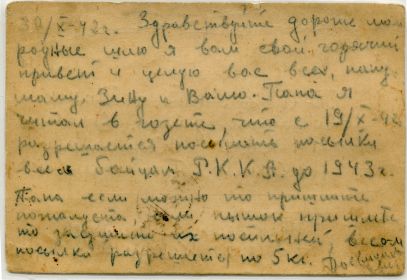 30/X-42г. Здравствуйте дорогие мои
родные шлю я вам свой горячий
привет и целую вас всех, папу
маму, Зину и Валю. Папа я
читал в газете что с 19/X-42
разрешается посылать посылки
всем бойцам Р.К.К.А. до 1943г.
Папа если можно то пришлите
пожалуста,
то их весом
посылки разрешается по 5 кг.